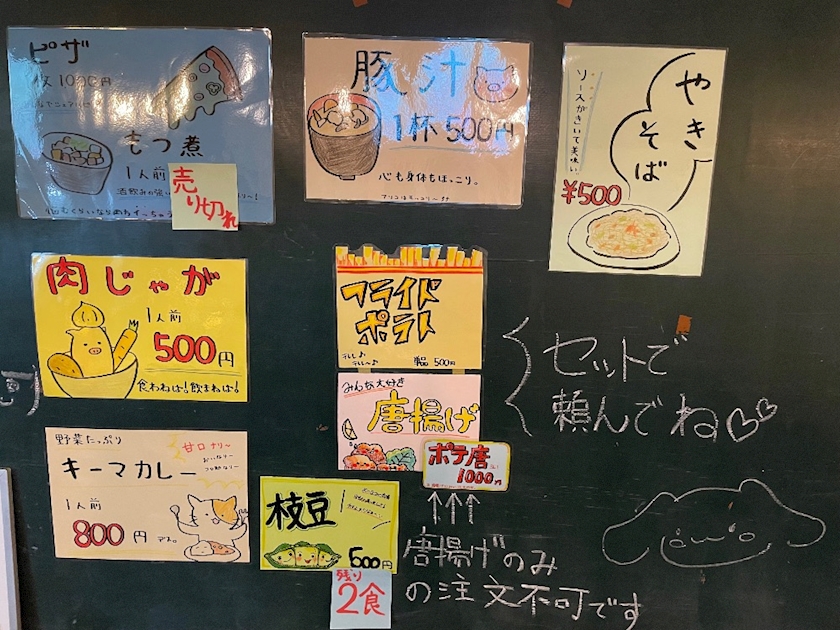 ピザ
1枚 1000円
もつ煮
1人前
売り切れ
豚汁
1杯 500円
心も身体もほっこり。
やきそば
ソースがきいて美味い。
¥500
肉じゃが
1人前
500円
食わねば!飲まねば!
フライド
ポテト
単品 500円
みんな大好き
唐揚げ
ポテ唐
1000円
セットで
頼んでね♡♡
↑↑↑
唐揚げのみ
の注文不可です
野菜たっぷり
キーマカレー
甘口ナリ〜
1人前
800円
枝豆
500円
残り
2食